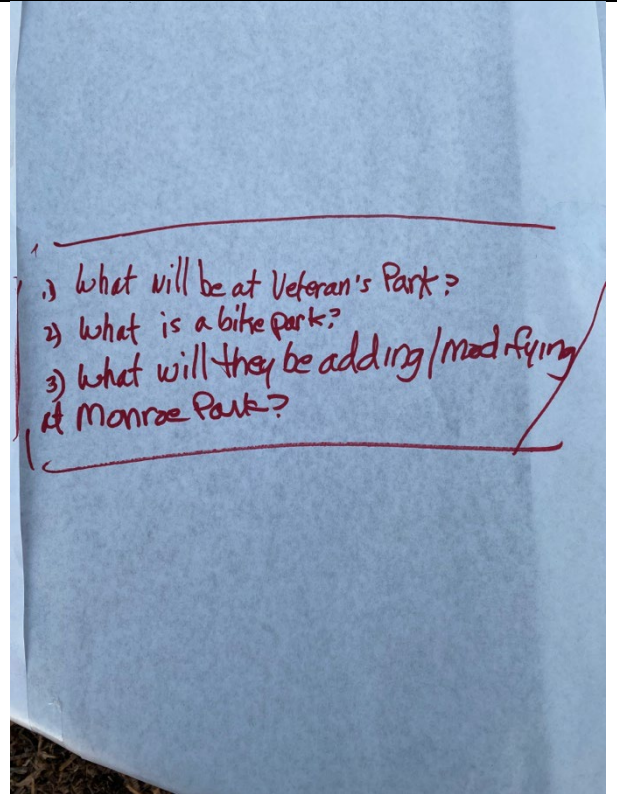 1) What will be at Veteran's Park?
2) What is a bike park?
3) What will they be adding/modifying
at Monroe Park?